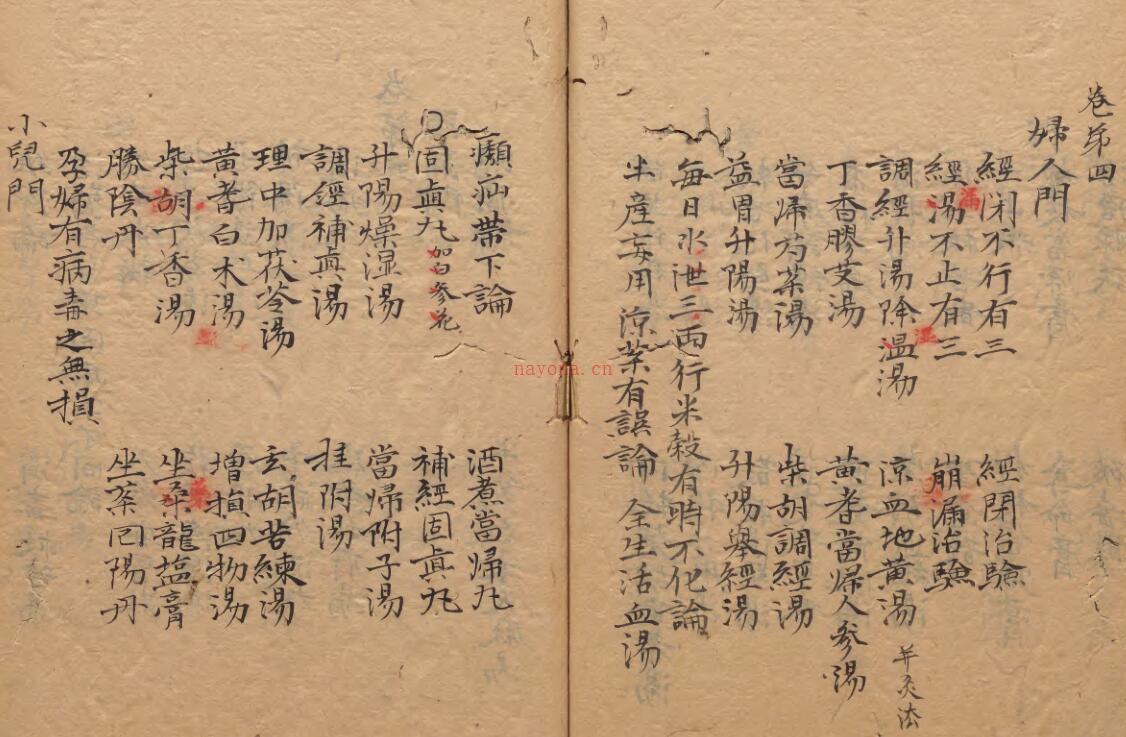 卷第四
婦人門
經闭不行有三
經閉治驗
經湯不止有三
漏
崩漏治驗
調經升湯除温湯
濕
凉血地黄湯 并灸法
丁香膠艾湯
黄耆當帰人参湯
當帰芍薬湯
柴胡調經湯
益胃升陽湯
升陽舉經湯
每日水泄三兩行米穀有時不化論
半産妄用凉薬有誤論
全生活血湯
癩疝帶下論
酒煮當帰丸
固真丸 加白参花
補經固真丸
升陽燥湿湯
當帰附子湯
調經補真湯
桂附湯
理中加茯苓湯
玄胡苦練湯
黄耆白术湯
增損四物湯
柴胡丁香湯
坐薬龍塩膏
勝陰丹
坐薬回陽丹
孕婦有病毒之無損
小兒門
nayona.cn